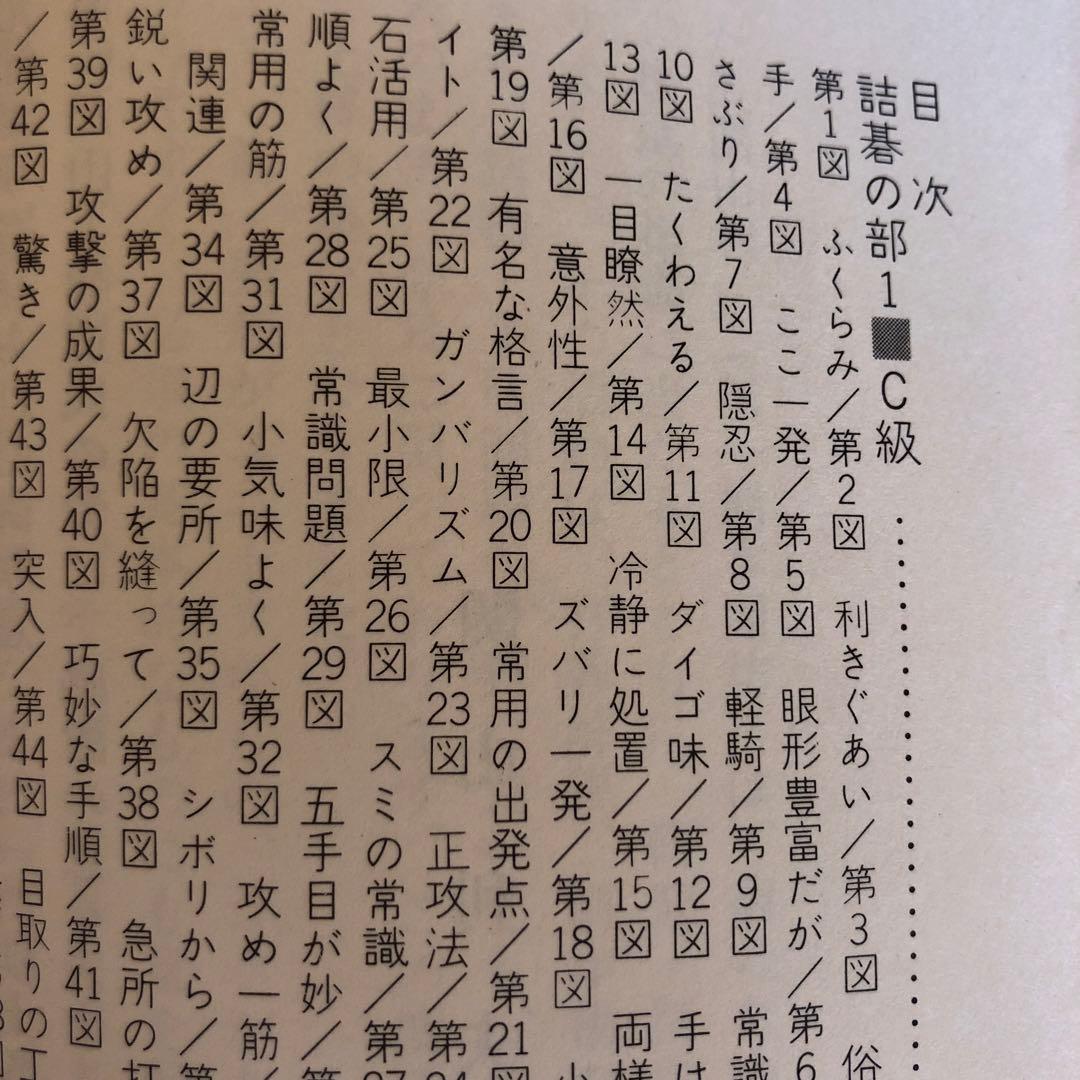 目次
詰碁の部1■C級………
第1図　ふくらみ／第2図　利きぐあい／第3図　俗
手／第4図　ここ一発／第5図　眼形豊富だが／第6
さぶり／第7図　隠忍／第8図　軽騎／第9図　常識
10図　たくわえる／第11図　ダイゴ味／第12図　手は
13図　一目瞭然／第14図　冷静に処置／第15図　両様
／第16図　意外性／第17図　ズバリ一発／第18図　小
第19図　有名な格言／第20図　常用の出発点／第21図
イト／第22図　ガンバリズム／第23図　正攻法／第24
石活用／第25図　最小限／第26図　スミの常識／第27
順よく／第28図　常識問題／第29図　五手目が妙／第
常用の筋／第31図　小気味よく／第32図　攻め一筋／
関連／第34図　辺の要所／第35図　シボリから／第
鋭い攻め／第37図　欠陥を縫って／第38図　急所の打
第39図　攻撃の成果／第40図　巧妙な手順／第41図
／第42図　驚き／第43図　突入／第44図　目取りの工